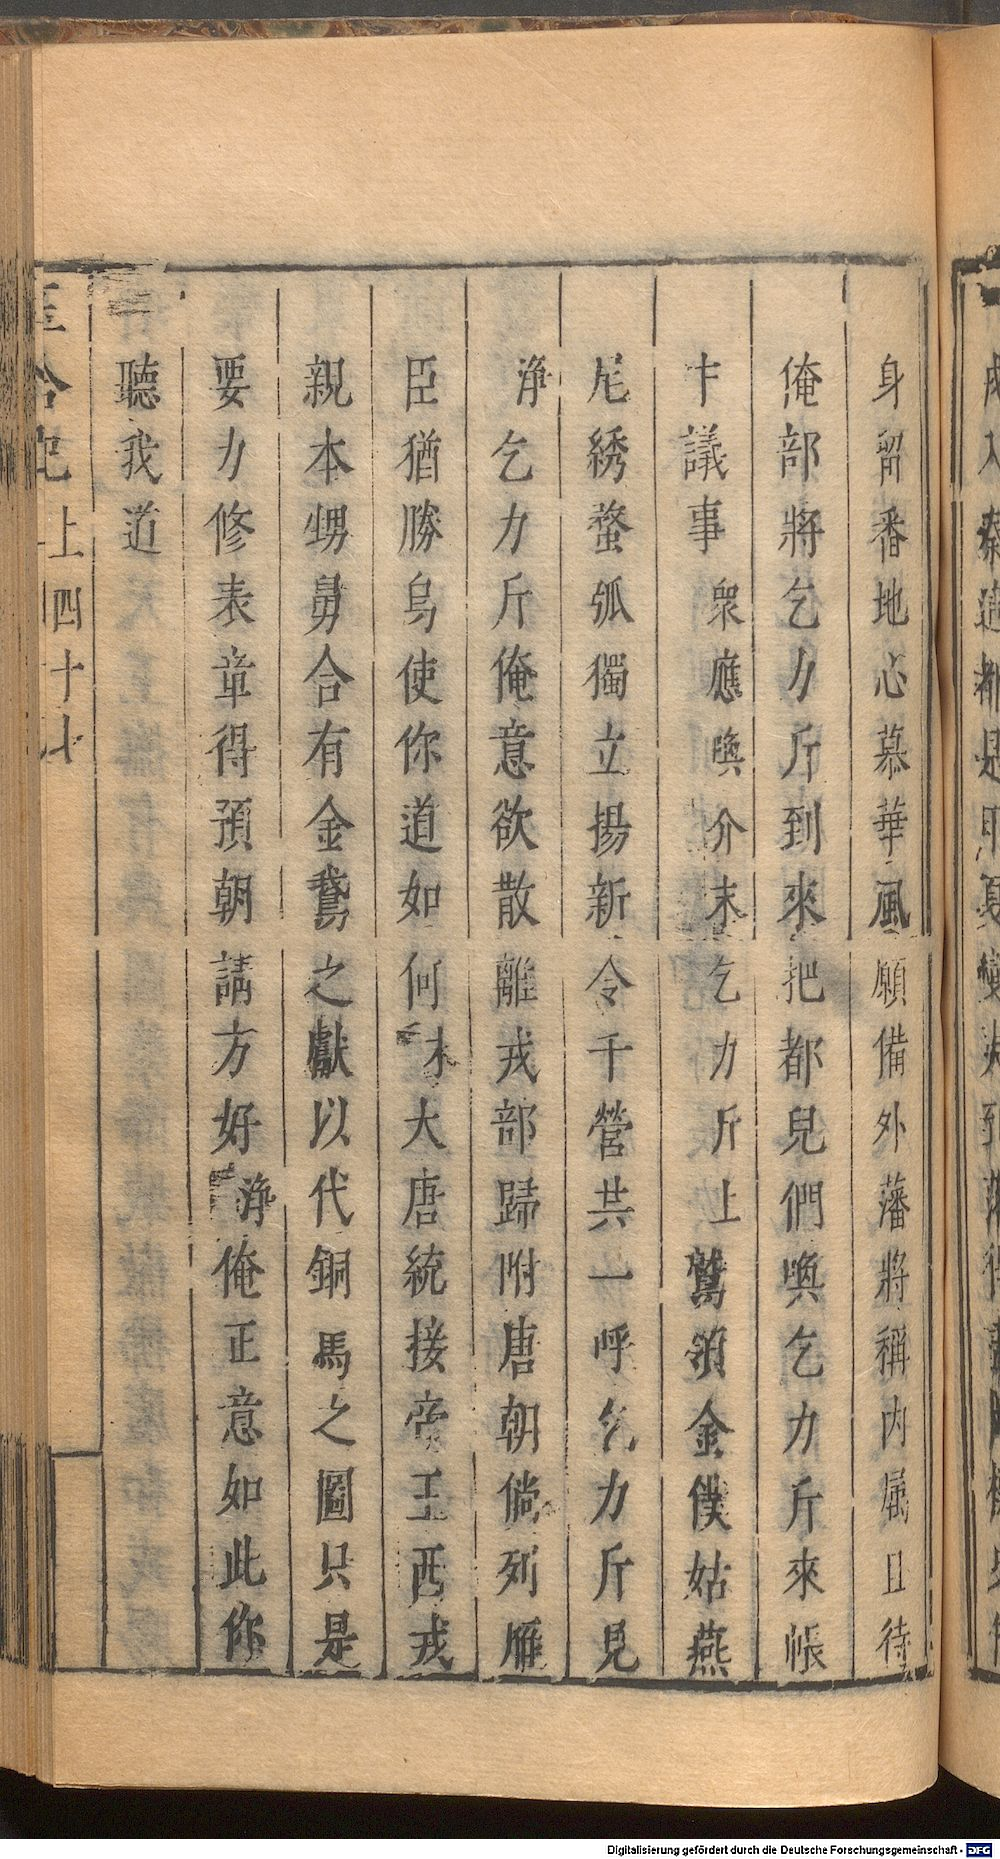 身留番地心慕華風願備外藩將稱內属且待
俺部將乞力斤到來把都兒們喚乞力斤來帳
中議事衆應喚介末乞力斤上鷲領金僕姑燕
尾綉蝥弧獨立揚新令千營共一呼乞力斤見
淨乞力斤俺意欲散離戎部歸附唐朝倘列雁
臣猶勝烏使你道如何末大唐統接帝王西戎
親本甥舅合有金鵞之獻以代銅馬之圖只是
要力修表章得預朝請方好淨俺正意如此你
聽我道
合記
上四十七
Digitalisierung gefördert durch die Deutsche Forschungsgemeinschaft - DFG